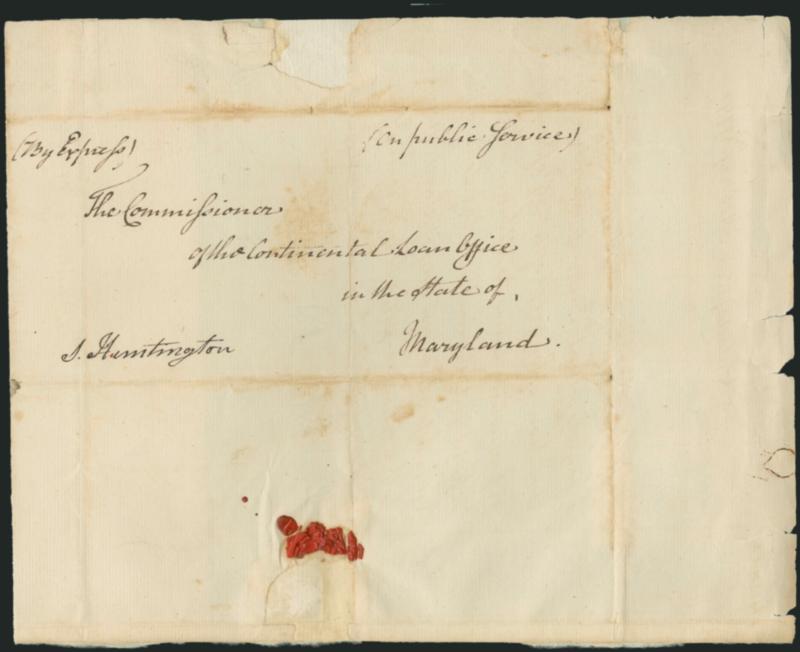 (By Express) (On public Service)
The Commissioner
of the Continental Loan Office
in the State of,
S. Huntington Maryland.